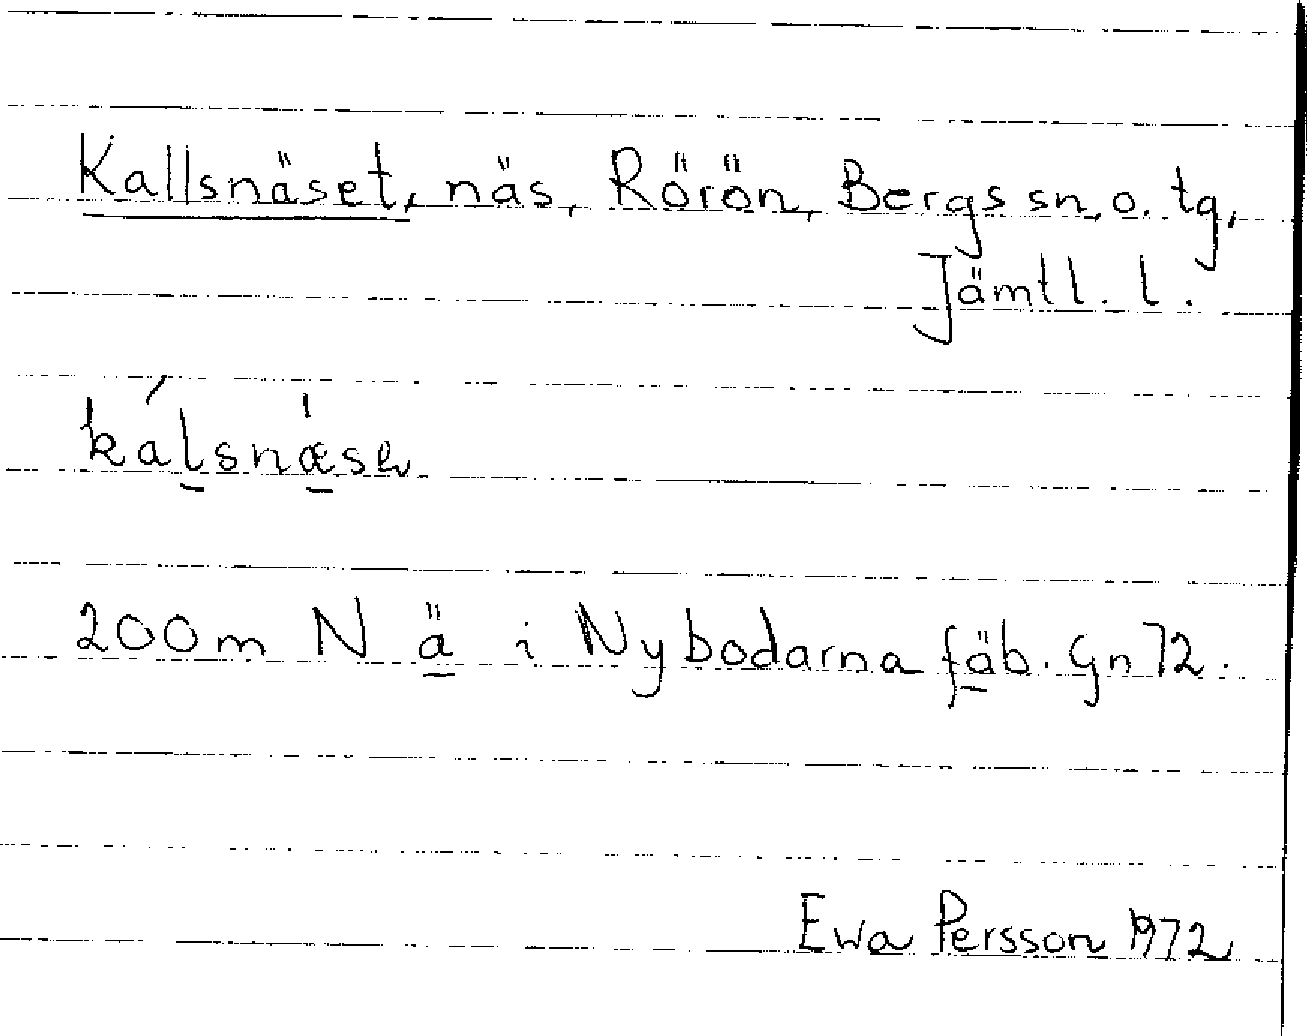 Kallsnäset, näs, Rörön, Bergs sn. o. tg,
Jämtl. l.
200 m N ä i Nybodarna fäb. Gn 72.
Ewa Persson 1972